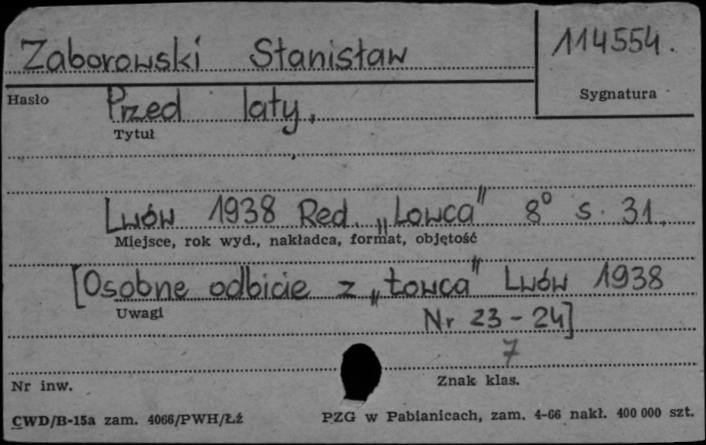 Zaborowski Stanisław
114554.
Hasło
Sygnatura
Przed laty.
Tytuł
Lwów 1938 Red. „Łowca" 8° s. 31.
Miejsce, rok wyd., nakładca, format, objętość
[Osobne odbicie z „Łowca" Lwów 1938
Uwagi
Nr 23-24]
7
Nr inw.
Znak klas.
CWD/B-15a zam. 4066/PWH/ŁŹ
PZG w Pabianicach, zam. 4-66 nakł. 400 000 szt.